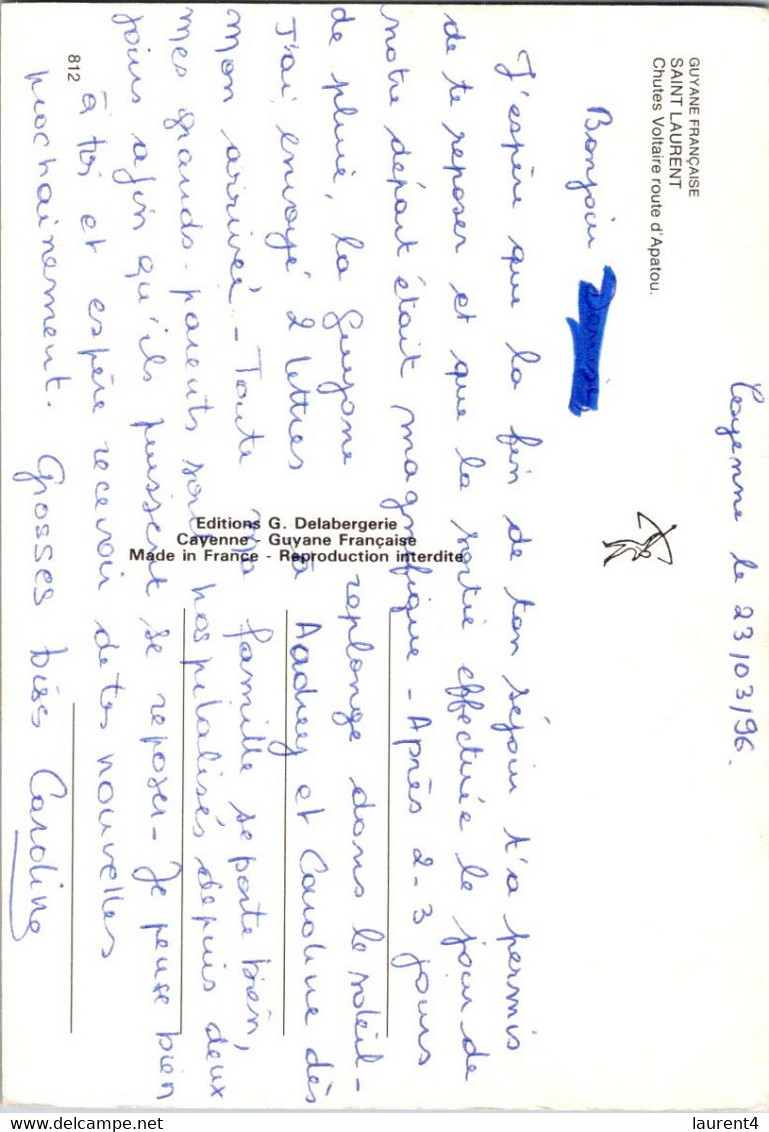 GUYANE FRANÇAISE
SAINT LAURENT
Chutes Voltaire route d'Apatou.
Cayenne le 23/03/96.
Bonjour
J'espère que la fin de ton séjour t'a permis
de te reposer et que la sortie effectuée le jour de
notre départ était magnifique - Après 2-3 jours
de pluie, la Guyane replonge dans le soleil -
J'ai envoyé 2 lettres à Audrey et Caroline dès
mon arrivée - Toute ma famille se porte bien,
mes grands-parents sont hospitalisés depuis deux
jours afin qu'ils puissent se reposer - Je pense bien
à toi et espère recevoir de tes nouvelles
prochainement. Grosses bises Caroline
812
Editions G. Delabergerie
Cayenne - Guyane Française
Made in France - Reproduction interdite
laurent4